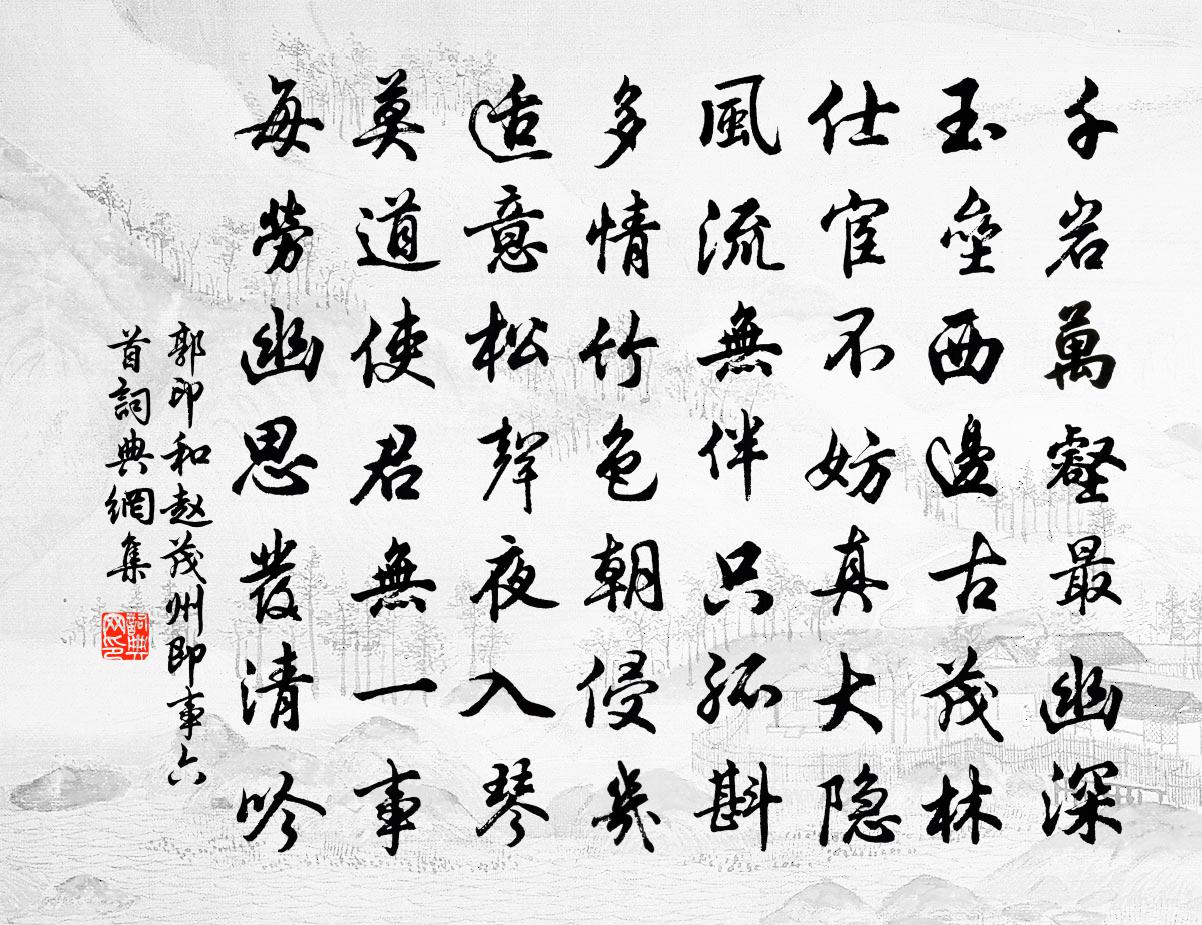 千岩萬壑最幽深
玉壘西邊古茂林
仕宦不妨真大隐
風流無伴只孤斟
多情竹色朝侵几
适意松聲夜入琴
莫道使君無一事
每勞幽思發清吟
郭印和赵茂州即事六
首詞典網集
詞典网印